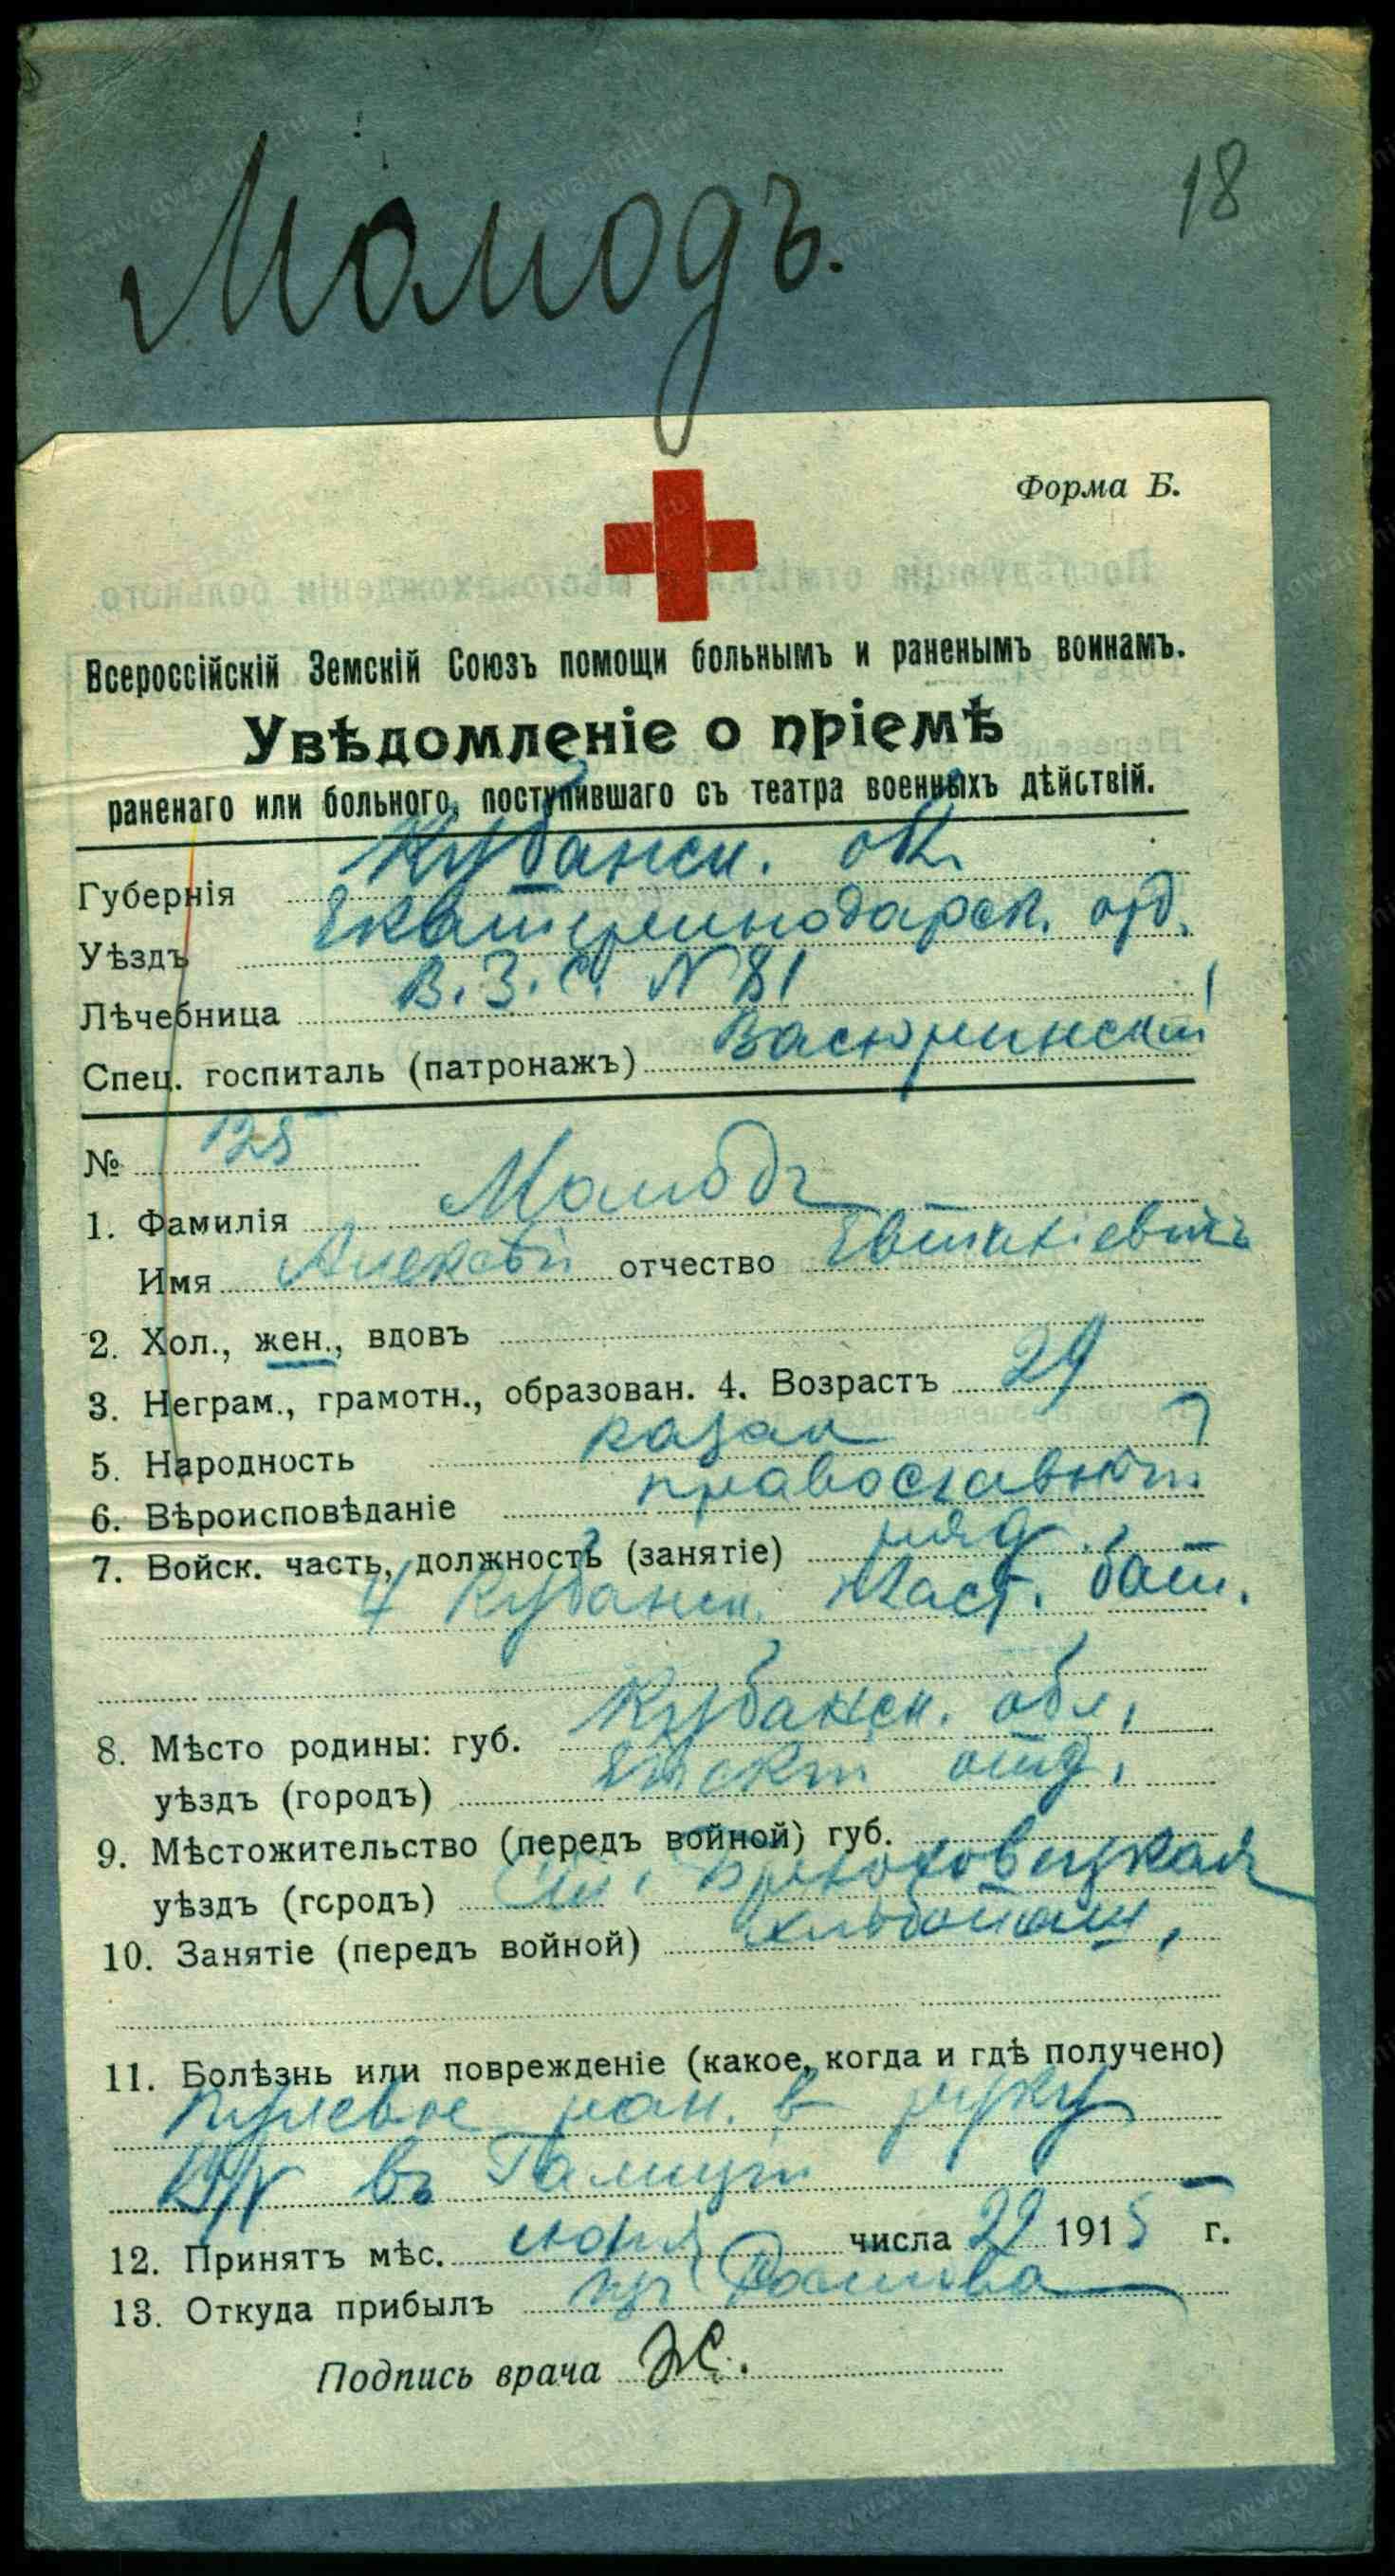 Молодъ.
18
Форма Б.
Всероссійскій Земскій Союзъ помощи больнымъ и раненымъ воинамъ.
Увѣдомленіе о пріемѣ
раненаго или больного, поступившаго съ театра военныхъ дѣйствій.
Губернія Кубанск. обл.
Уѣздъ Екатеринодарск. отд.
Лѣчебница В.З.С. N 81
Спец. госпиталь (патронажъ) Васюринскій
№ 125
1. Фамилія Молодъ
Имя Алексѣй отчество Евтихіевичъ
2. Хол., жен., вдовъ
3. Неграм., грамотн., образован. 4. Возрастъ 29
5. Народность казак
6. Вѣроисповѣданіе православн.
7. Войск. часть, должность (занятіе) ряд.
4 Кубанск. пласт. бат.
8. Мѣсто родины: губ. Кубанск. обл.
уѣздъ (городъ) отд.
9. Мѣстожительство (передъ войной) губ.
уѣздъ (городъ) Ст. Брюховецкая
10. Занятіе (передъ войной) хлѣбопаш.
11. Болѣзнь или поврежденіе (какое, когда и гдѣ получено)
Пулевое ран. в руку
въ Галиціи
12. Принятъ мѣс. июня числа 29 1915 г.
13. Откуда прибылъ из Ростова
Подпись врача